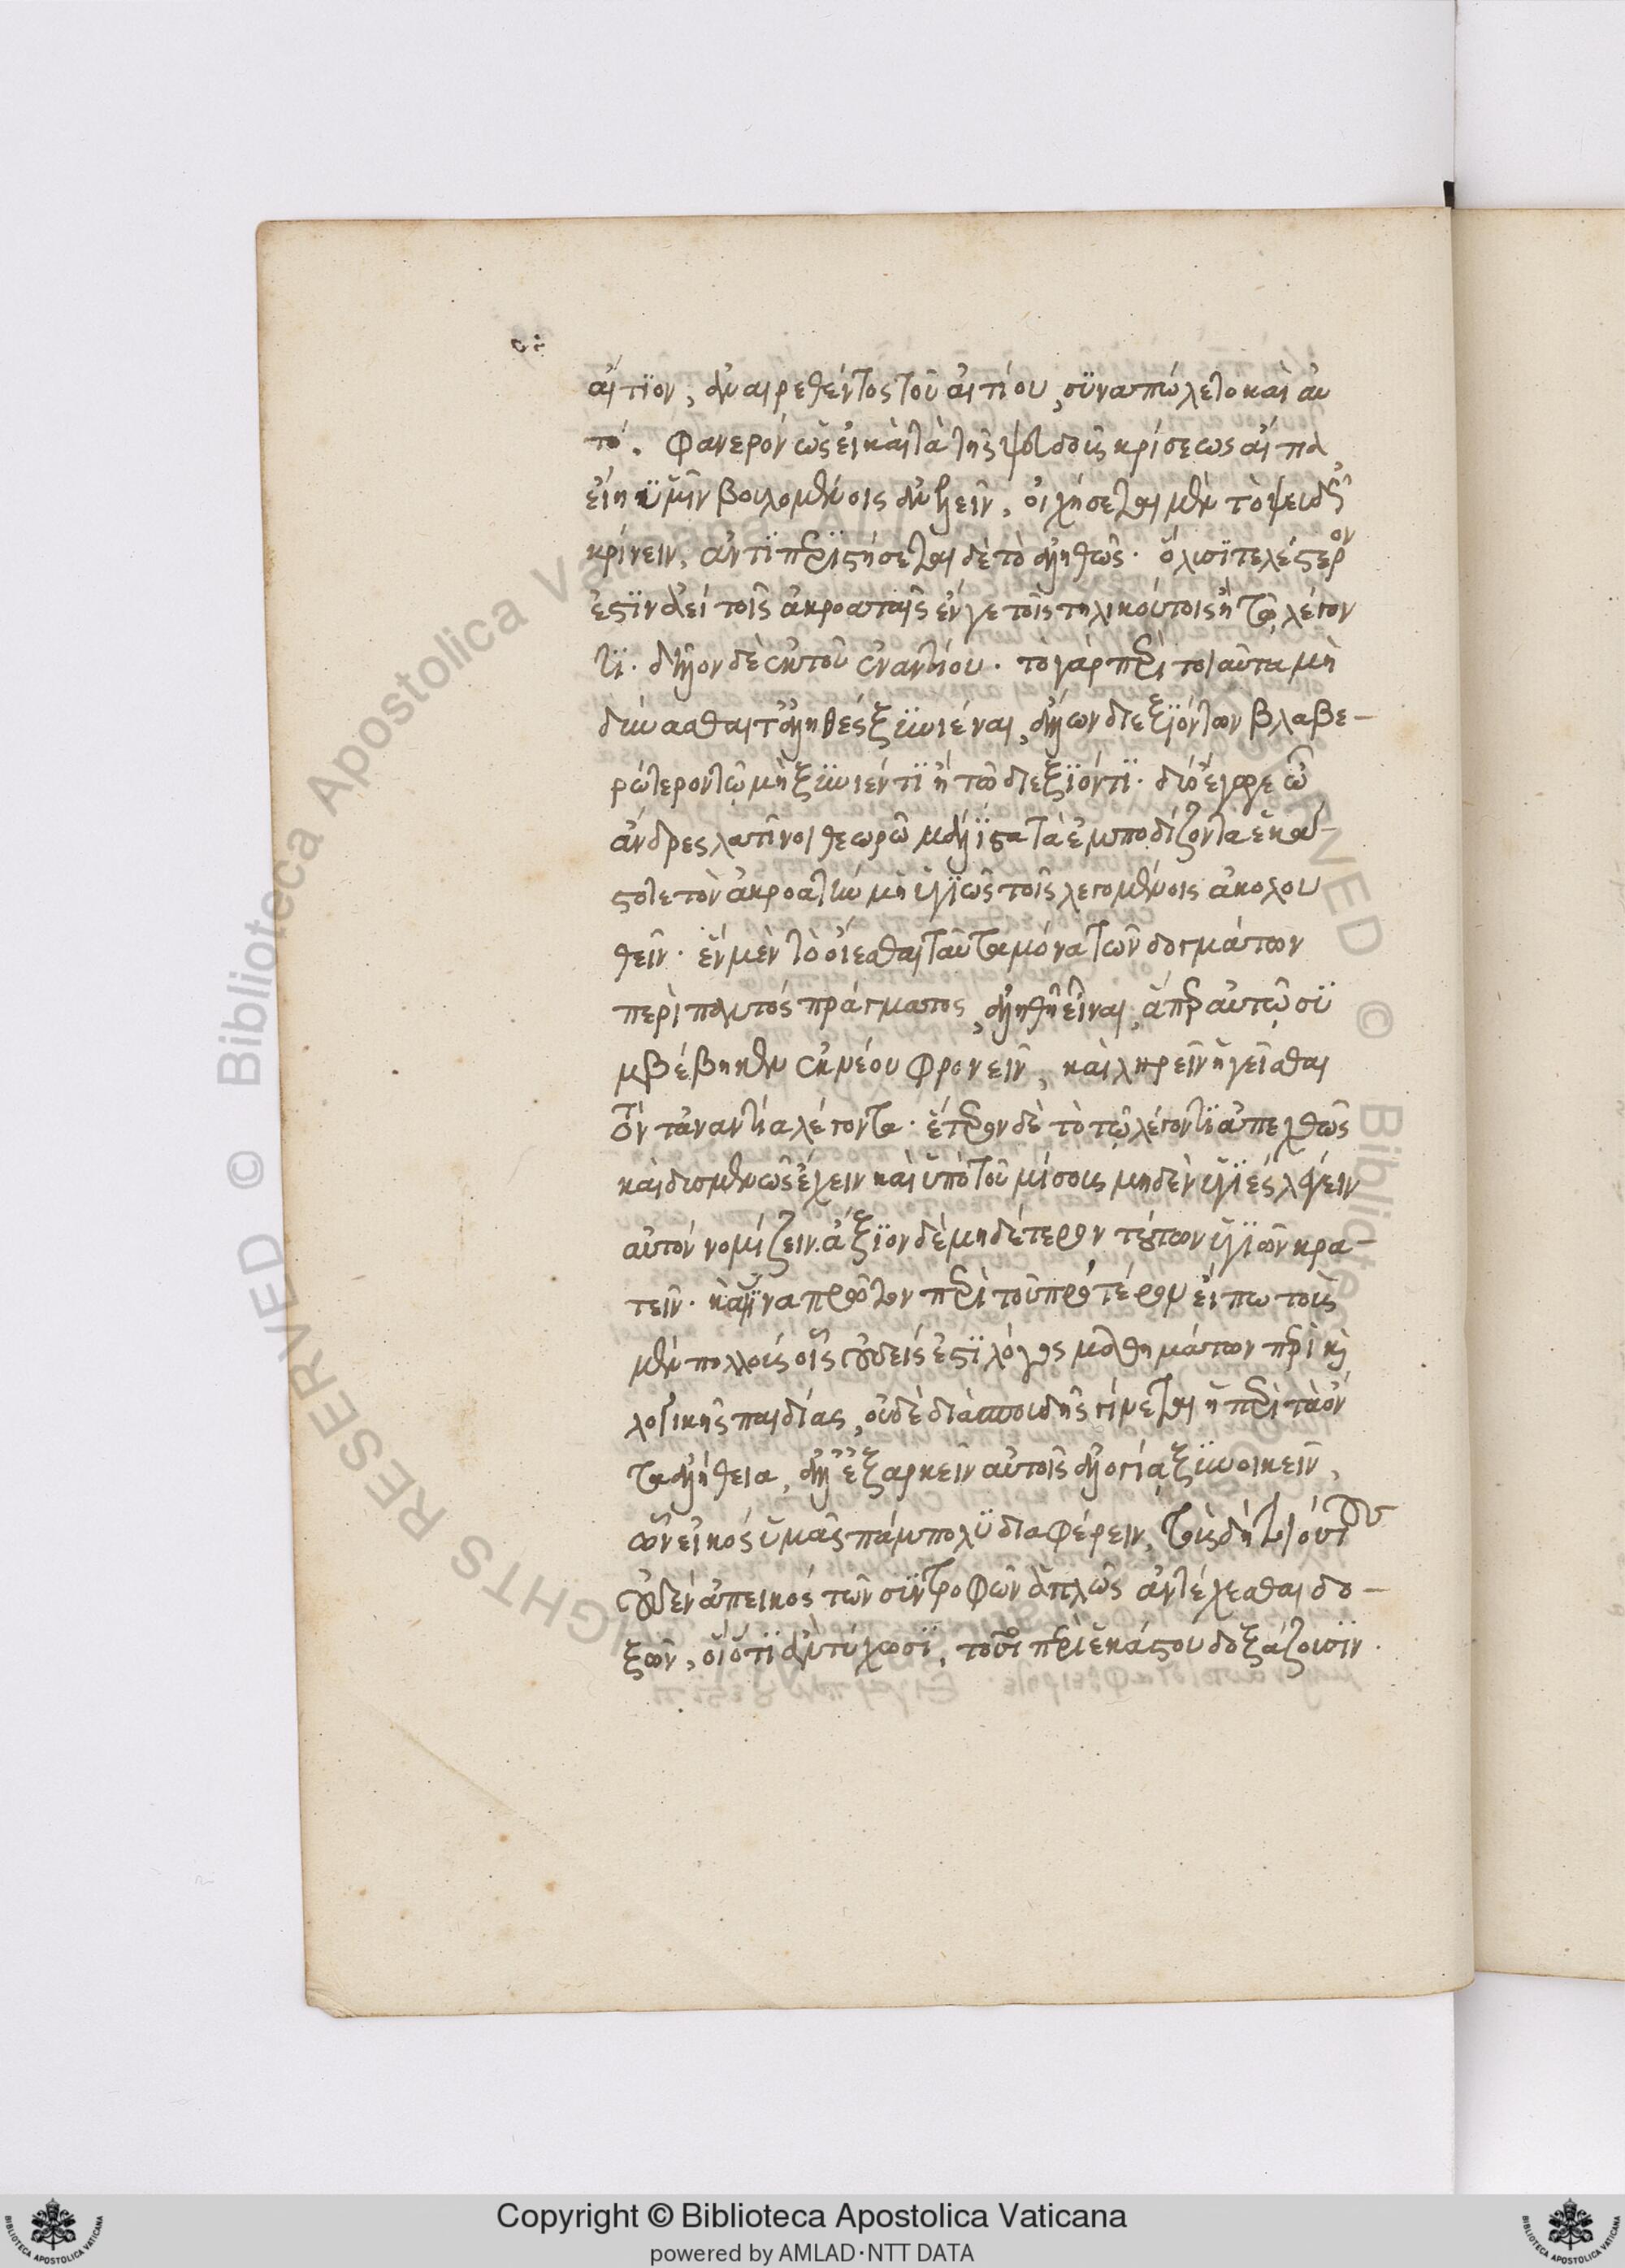 αἴτϊον, ἀναιρεθέντος τοῦ αἰτίου, σϋναπώλετο καὶ αὐ
τό. Φανερόν ὡς εἰ καὶ τὰ τῆς ψευδοῦς κρίσεως αἴτια
εἴη ὑμῖν βουλομένοις ἀνελεῖν, οἰχήσεται μὲν τὸ ψευδῶς
κρίνειν, ἀντϊπεριστήσεται δὲ τὸ ἀληθῶς. ὃ λυσϊτελέστερον
ἐστϊν ἀεί τοῖς ἀκροαταῖς ἔν γε τοῖς τηλικούτοις ἢ τῷ λέγον
τϊ. δῆλον δὲ ἐκ τοῦ ἐναντίου. τὸ γάρ περὶ τοιαῦτα μὴ
δύνασθαι τἀληθές ξυνιέναι, ἄλλων διεξϊόντων βλαβε-
ρώτερον τῷ μὴ ξυνιέντϊ ἢ τῷ διεξϊόντϊ. διό ἔγωγε ὦ
ἄνδρες λατῖνοι θεωρῶ μάλϊστα τὰ ἐμποδίζοντα ἑκάσ-
στοτε τὸν ἀκροατὴν μὴ ὑγιῶς τοῖς λεγομένοις ἀκολου
θεῖν. ἓν μὲν τὸ οἴεσθαι ταῦτα μόνα τῶν δογμάτων
περὶ παντός πράγματος, ἀληθῆ εἶναι, ἅπερ αὐτῷ σϋ
μβέβηκεν ἐκ νέου φρονεῖν, καὶ ληρεῖν ἡγεῖσθαι
τὸν τἀναντία λέγοντα. ἕτερον δὲ τὸ τῷ λέγοντϊ ἀπεχθῶς
καὶ δυσμενῶς ἔχειν καὶ ὑπὸ τοῦ μίσους μηδὲν ὑγιές λέγειν
αὐτόν νομίζειν. ἄξϊον δὲ μηδέτερον τούτων ὑγιῶν κρα-
τεῖν. καὶ ἵνα πρῶτον περὶ τοῦ προτέρου εἴπω τοῖς
μὲν πολλοῖς οἷς οὐδείς ἐστϊ λόγος μαθημάτων πέρι καὶ
λογικῆς παιδίας, οὐδὲ διὰ σπουδῆς γίνεται ἡ περὶ τὰ ὄν
τα ἀλήθεια, ἀλλ' ἐξαρκεῖν αὐτοῖς ἀλογίᾳ ξυνοικεῖν,
ὧν εἰκός ὑμᾶς πάμπολϋ διαφέρειν, τοῖς δὴ τοιούτοις
οὐδέν ἀπεικός τῶν σϋντρόφων ἁπλῶς ἀντέχεσθαι δο-
ξῶν, οἳ ὅτϊ ἂν τύχωσϊ, τοῦτο περὶ ἑκάστου δοξάζουσϊν.
Copyright © Biblioteca Apostolica Vaticana
powered by AMLAD·NTT DATA